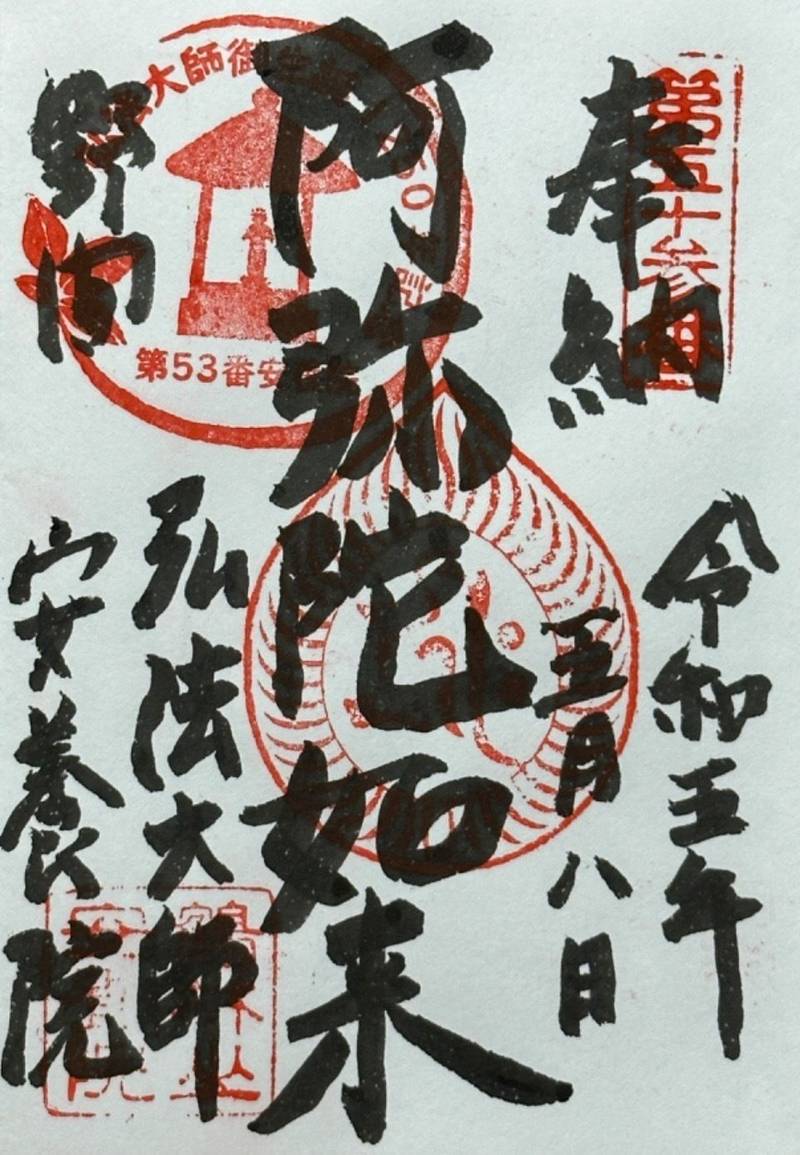 奉納
第五十参番
令和五年
五月八日
阿弥陀如来
弘法大師
野間
安養院
大師御生
50
第53番安